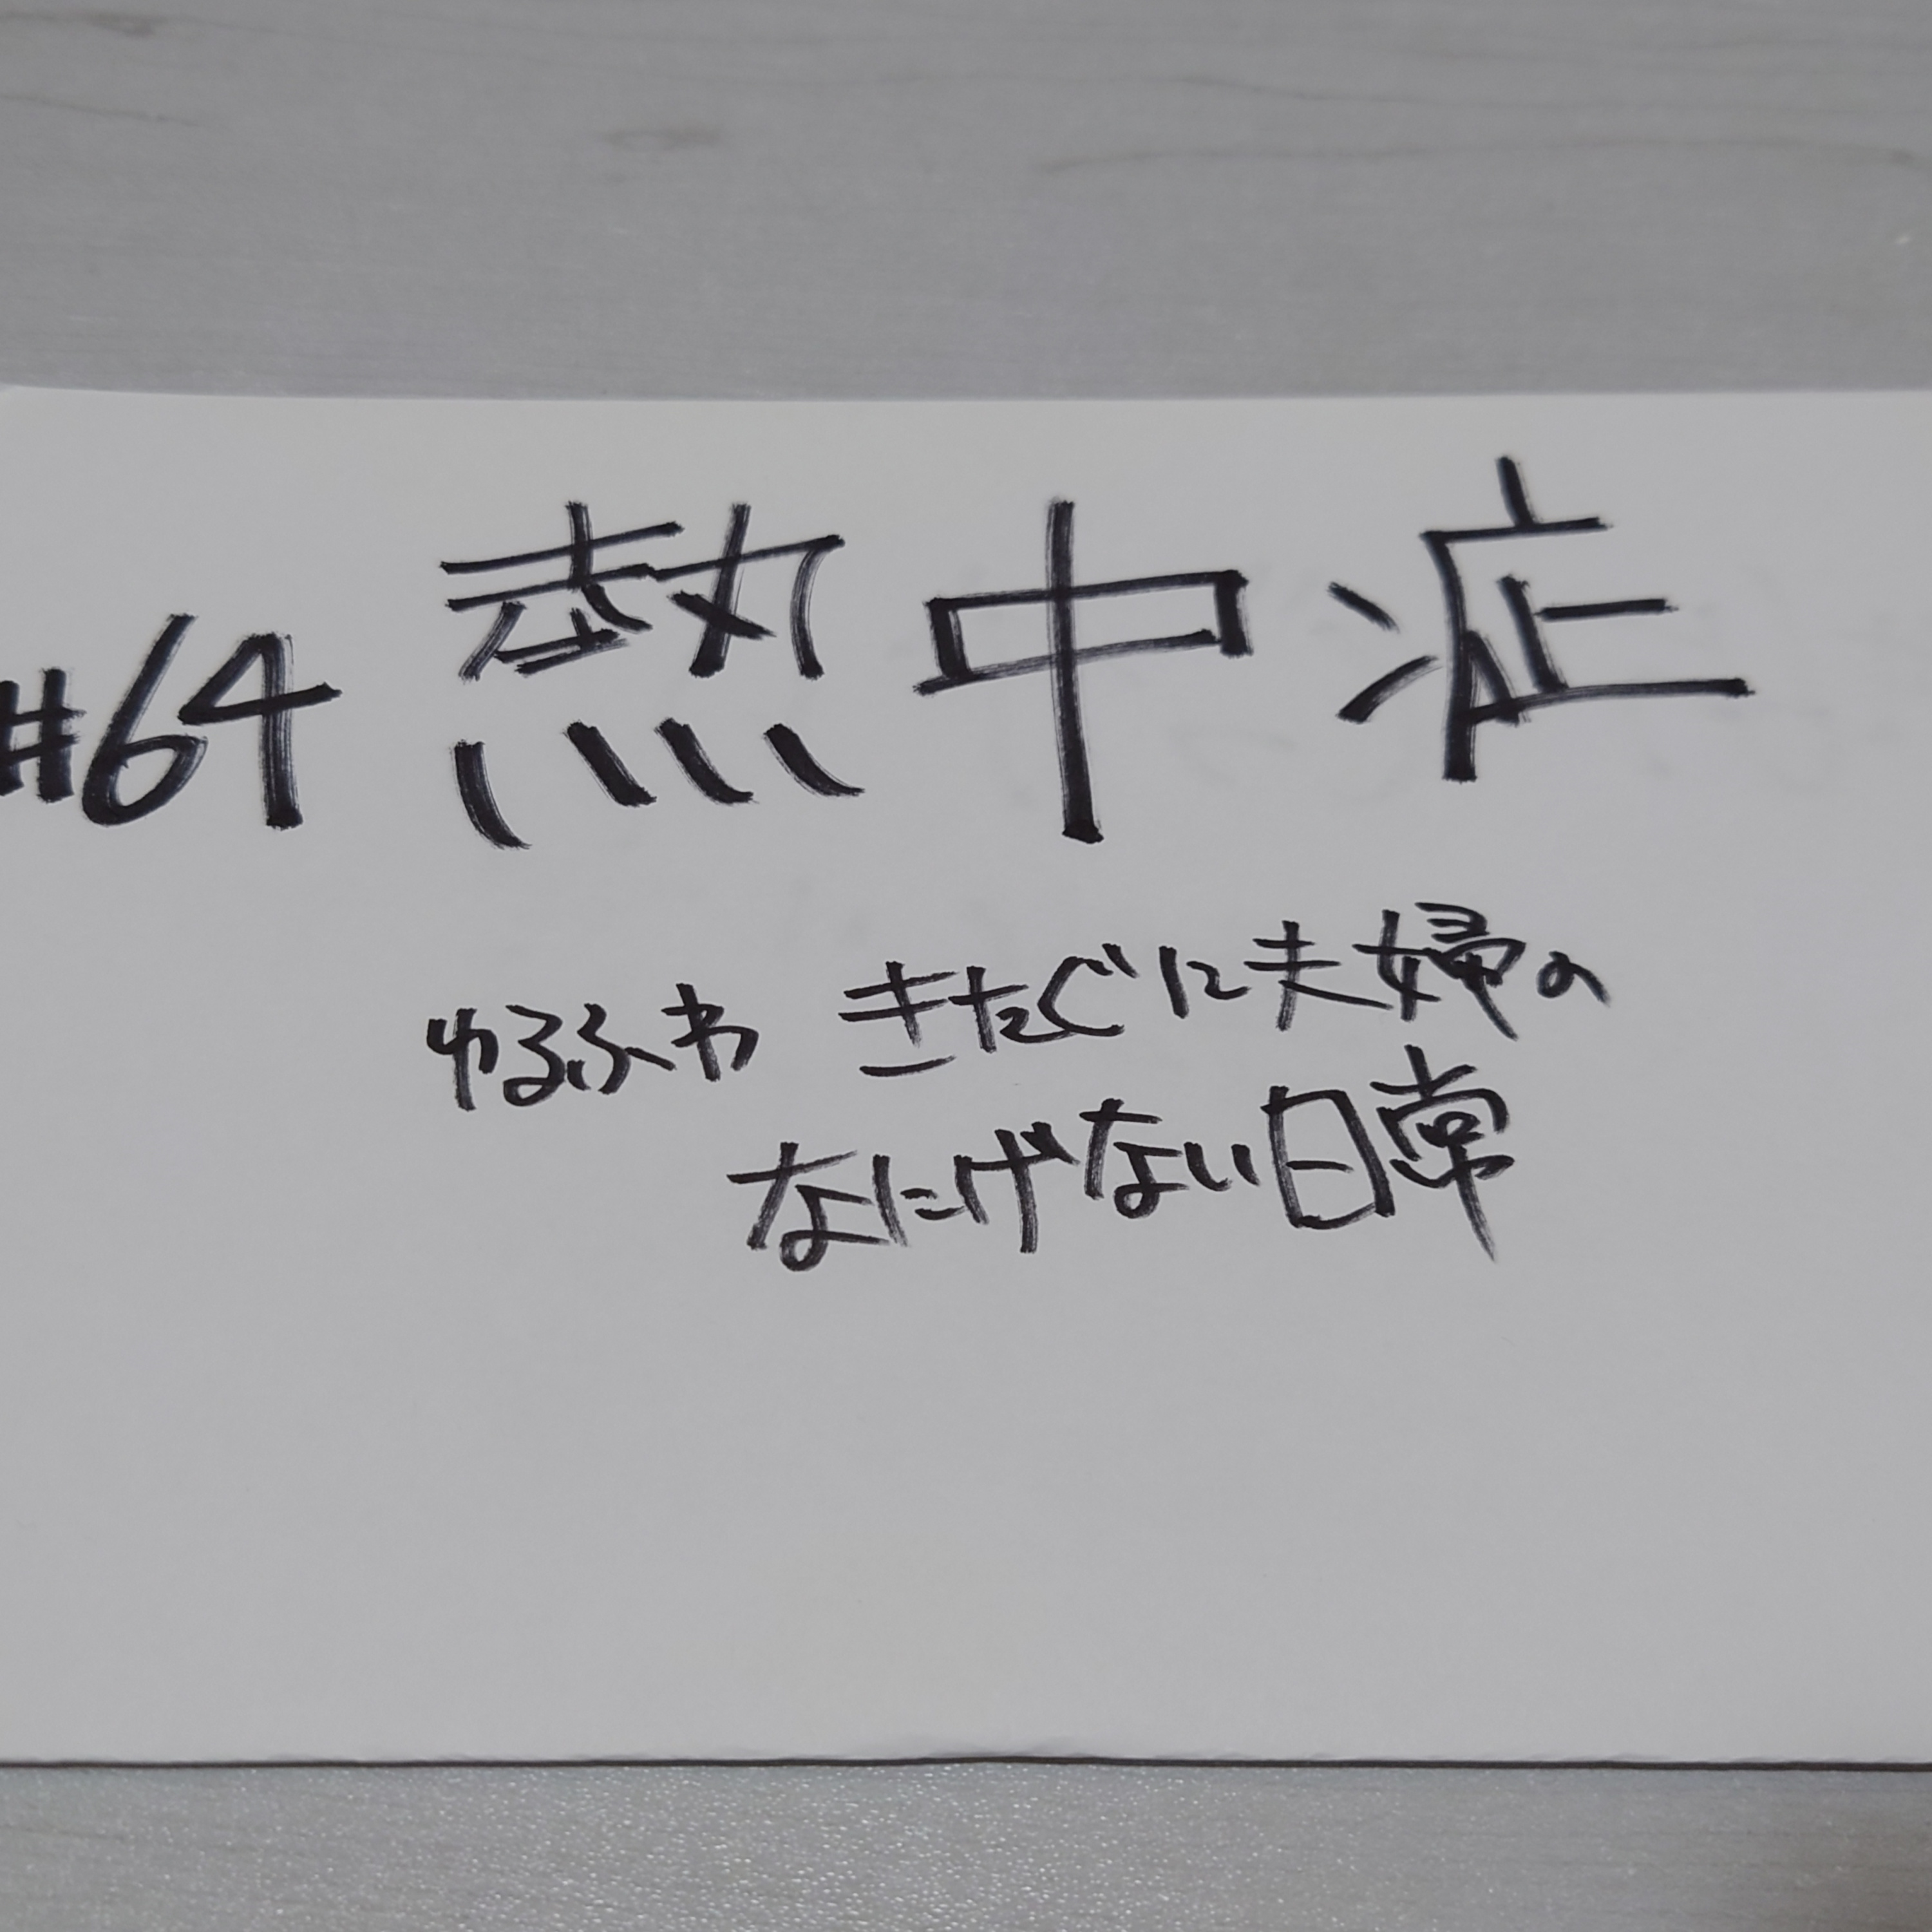 #64 熱中症
ゆるふわ きたぐに夫婦の
なにげない日常